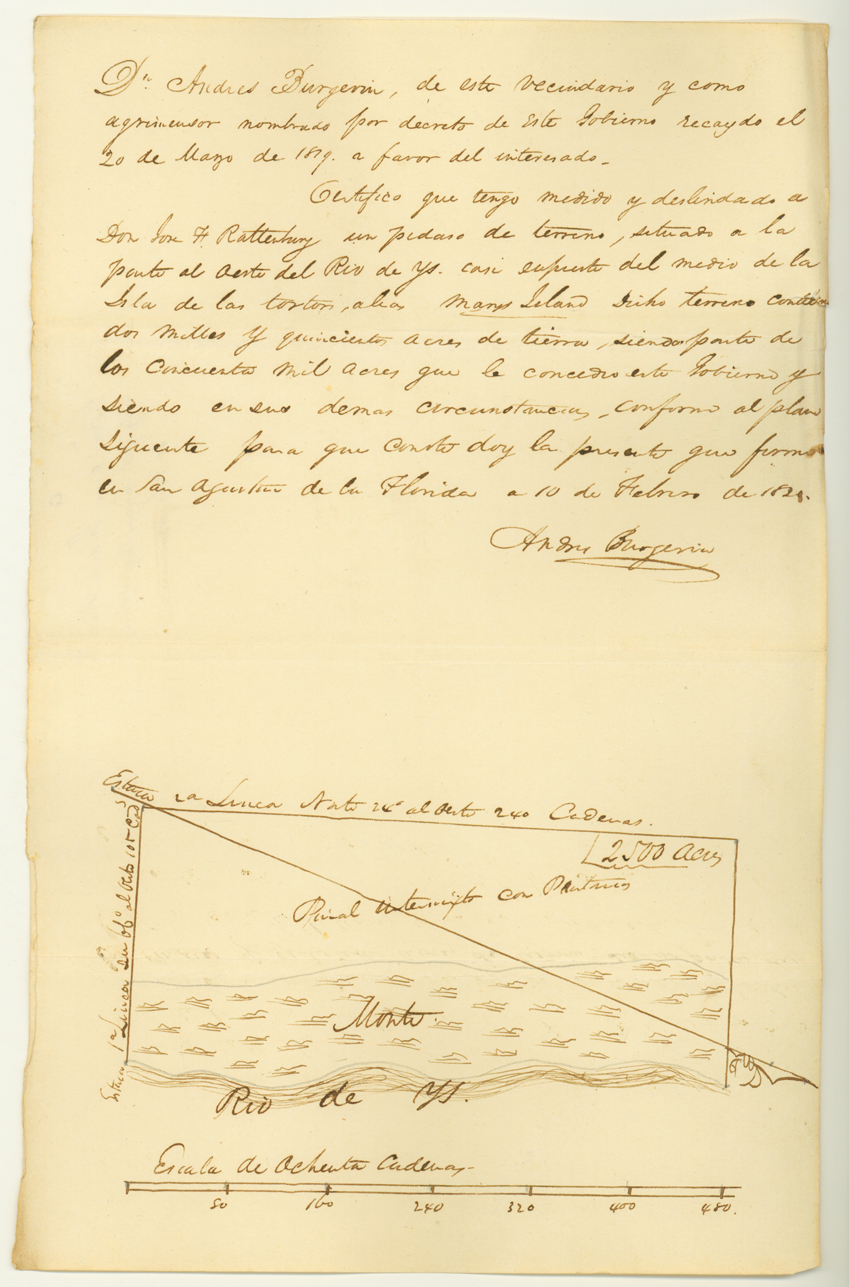 Dn. Andres Burgevin, de este vecindario y como
agrimensor nombrado por decreto de Este Gobierno recaydo el
20 de Mayo de 1819. a favor del interesado_
Certifico que tengo medido y deslindado a
Don Jose F. Rattenbury un pedaso de terreno, situado a la
parte al Oeste del Rio de Ys. casi del medio de la
Isla de las tortoris, alias Marys Island Dicho terreno
dos milles y quincientos acres de tierra, siendo parte de
los Cincuenta mil acres que le concedio este Gobierno y
siendo en sus demas circunstancias, conforme al plano
siguente para que conste doy la presente que firmo
en San Agustin de la Florida a 10 de Febrero de
Andres Burgevin
Estaca 2a Linea Norte 24° al Oeste 240 Cadenas.
2500 Acres
Pinal intermixto con
1a Linea Sur al Oeste 105 Cads
Estaca
Monte
Rio de Ys.
Escala de Ochenta Cadenas_
80 160 240 320 400 480.